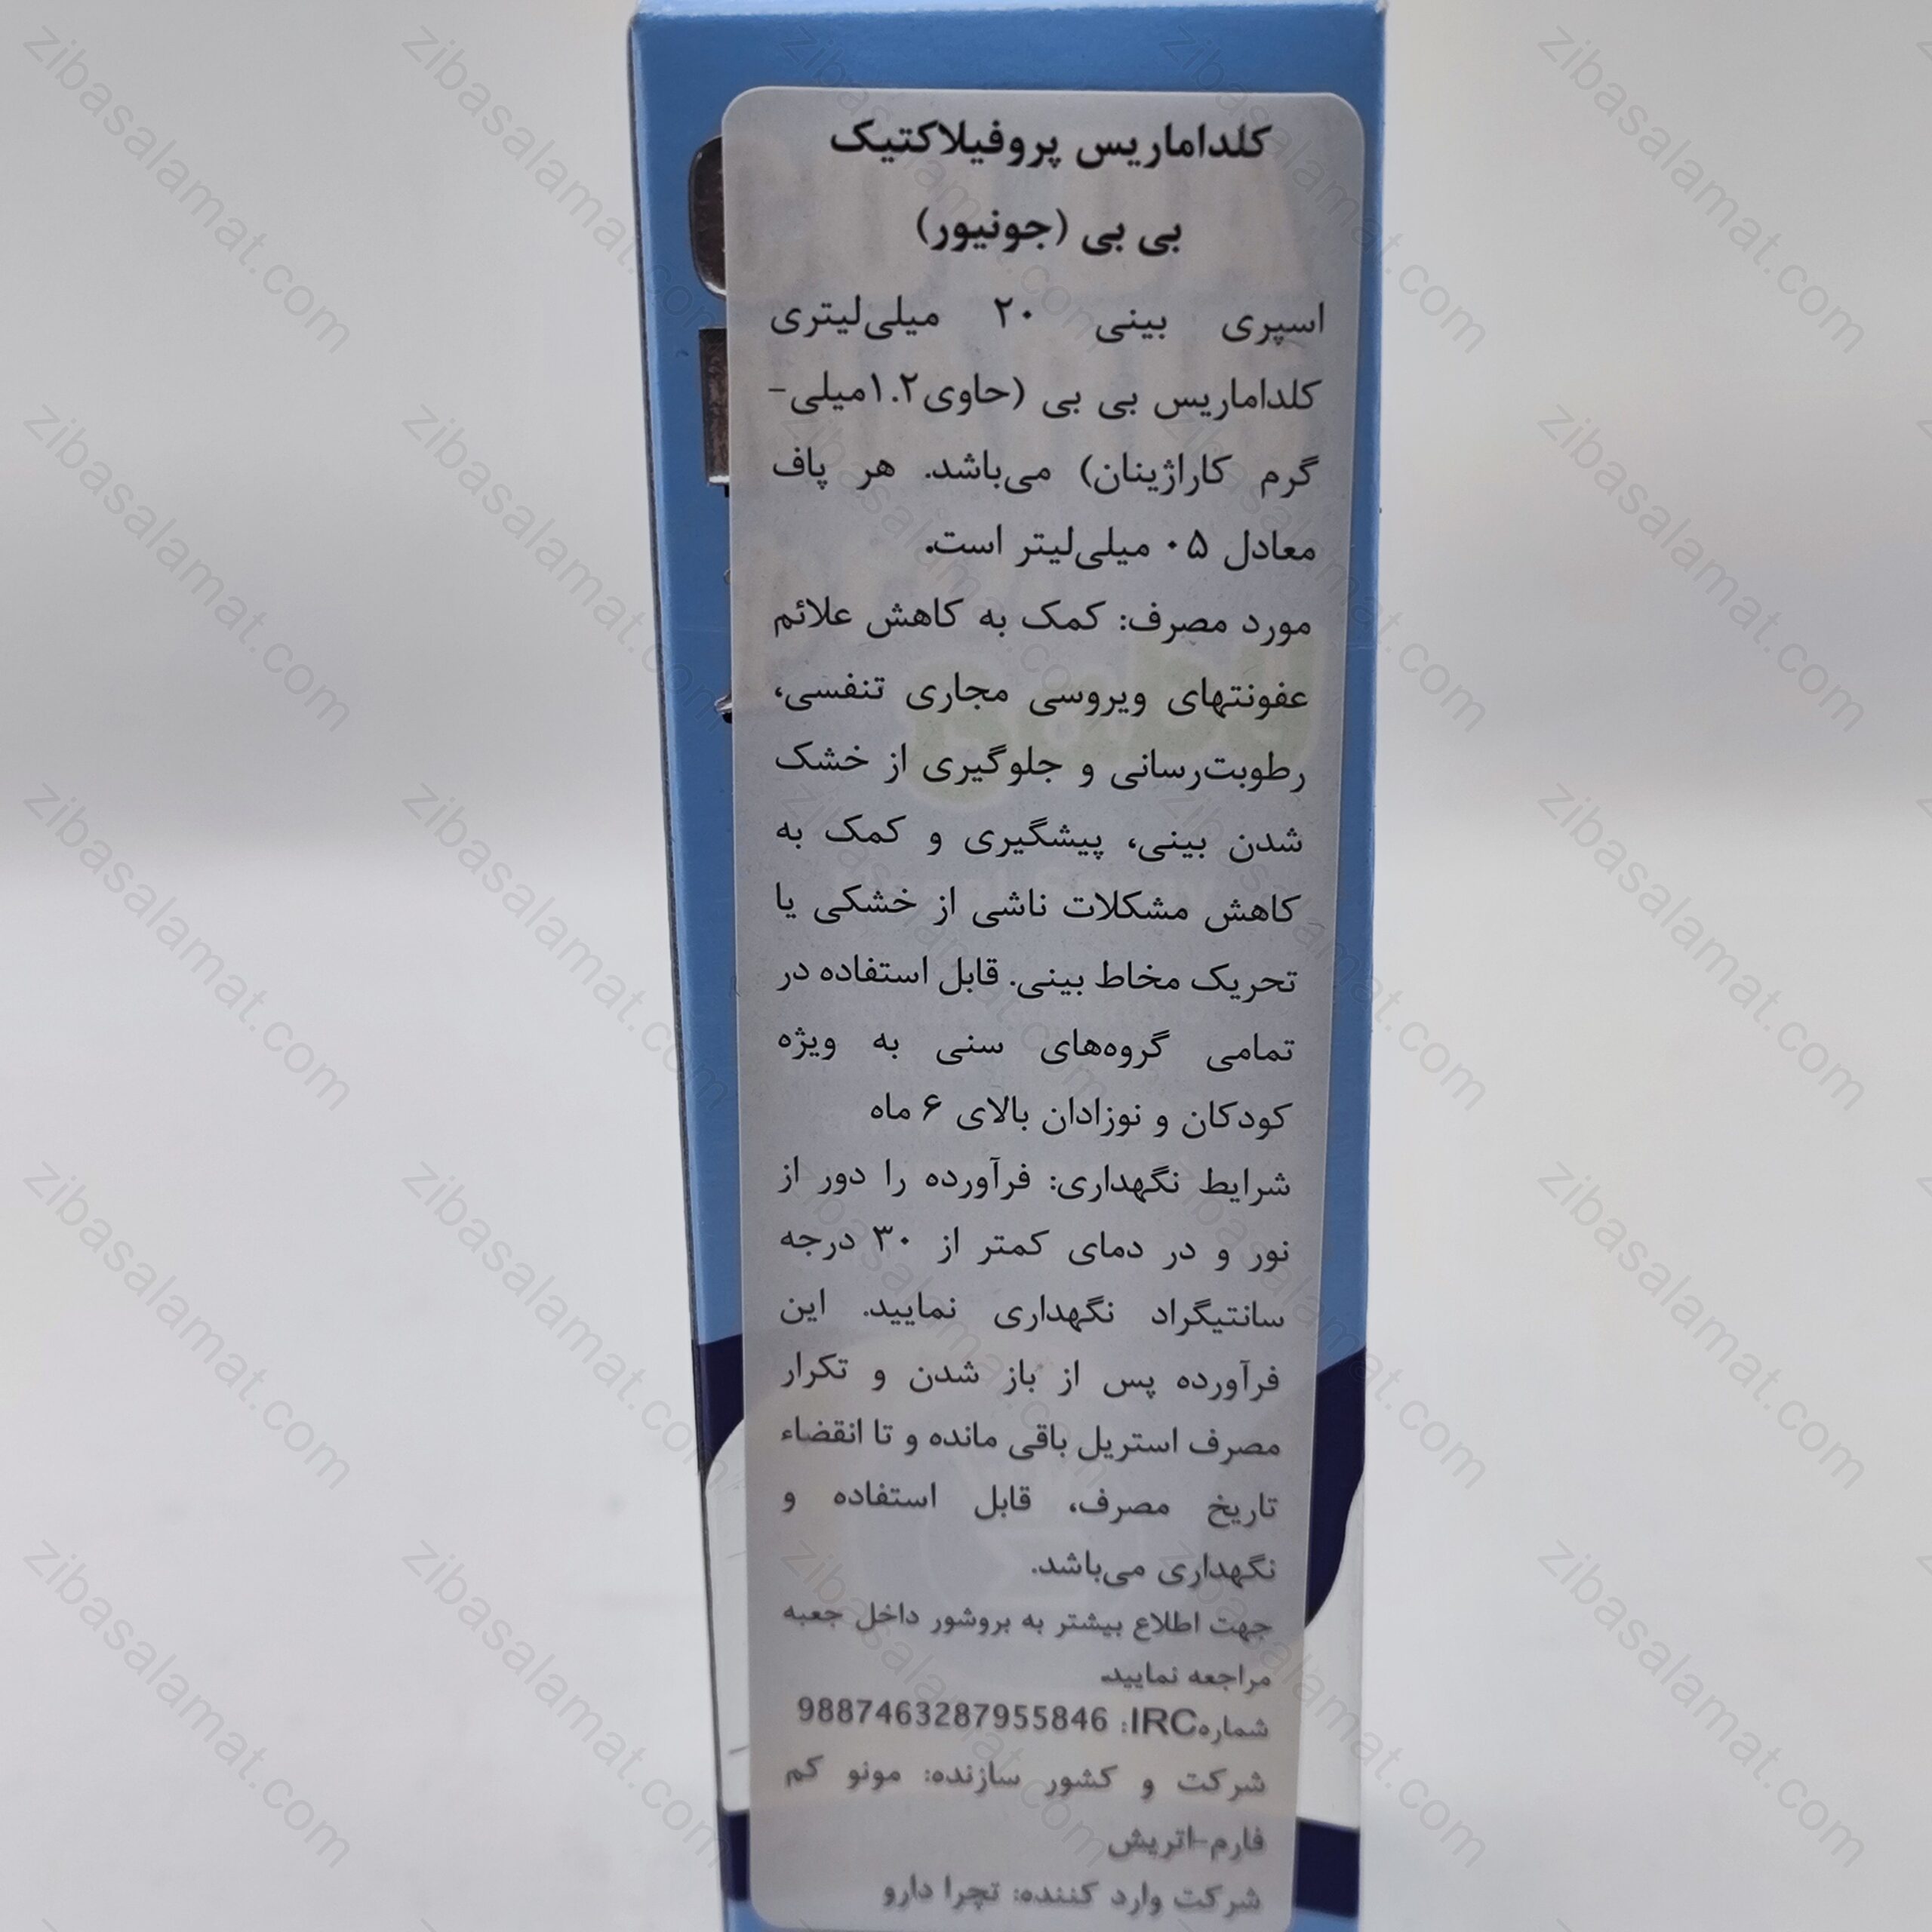 کلداماریس پروفیلاکتیک
بی بی (جونیور)
اسپری بینی ۲۰ میلی‌لیتری
کلداماریس بی بی (حاوی۱.۲میلی-
گرم کاراژینان) می‌باشد. هر پاف
معادل ۰۵ میلی‌لیتر است.
مورد مصرف: کمک به کاهش علائم
عفونتهای ویروسی مجاری تنفسی،
رطوبت‌رسانی و جلوگیری از خشک
شدن بینی، پیشگیری و کمک به
کاهش مشکلات ناشی از خشکی یا
تحریک مخاط بینی. قابل استفاده در
تمامی گروه‌های سنی به ویژه
کودکان و نوزادان بالای ۶ ماه
شرایط نگهداری: فرآورده را دور از
نور و در دمای کمتر از ۳۰ درجه
سانتیگراد نگهداری نمایید. این
فرآورده پس از باز شدن و تکرار
مصرف استریل باقی مانده و تا انقضاء
تاریخ مصرف، قابل استفاده و
نگهداری می‌باشد.
جهت اطلاع بیشتر به بروشور داخل جعبه
مراجعه نمایید.
شمارهIRC: 9887463287955846
شرکت و کشور سازنده: مونو کم
فارم-اتریش
شرکت وارد کننده: تچرا دارو
zibasalamat.com